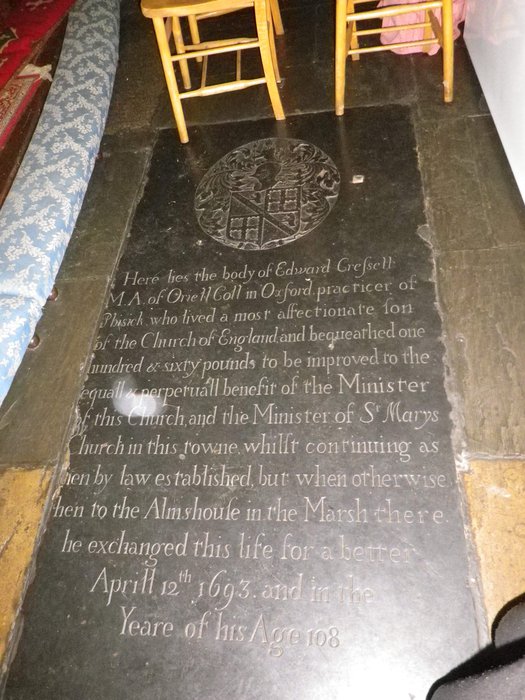 Here lies the body of Edward Cressett
M.A. of Oriell Coll in Oxford, practicer of
Phisick, who lived a most affectionate son
of the Church of England, and bequeathed one
hundred & sixty pounds to be improved to the
equall & perpetuall benefit of the Minister
of this Church, and the Minister of St Marys
Church in this towne, whilst continuing as
then by law established, but when otherwise
then to the Almshouse in the Marsh there
he exchanged this life for a better
Aprill 12th 1693. and in the
Yeare of his Age 108